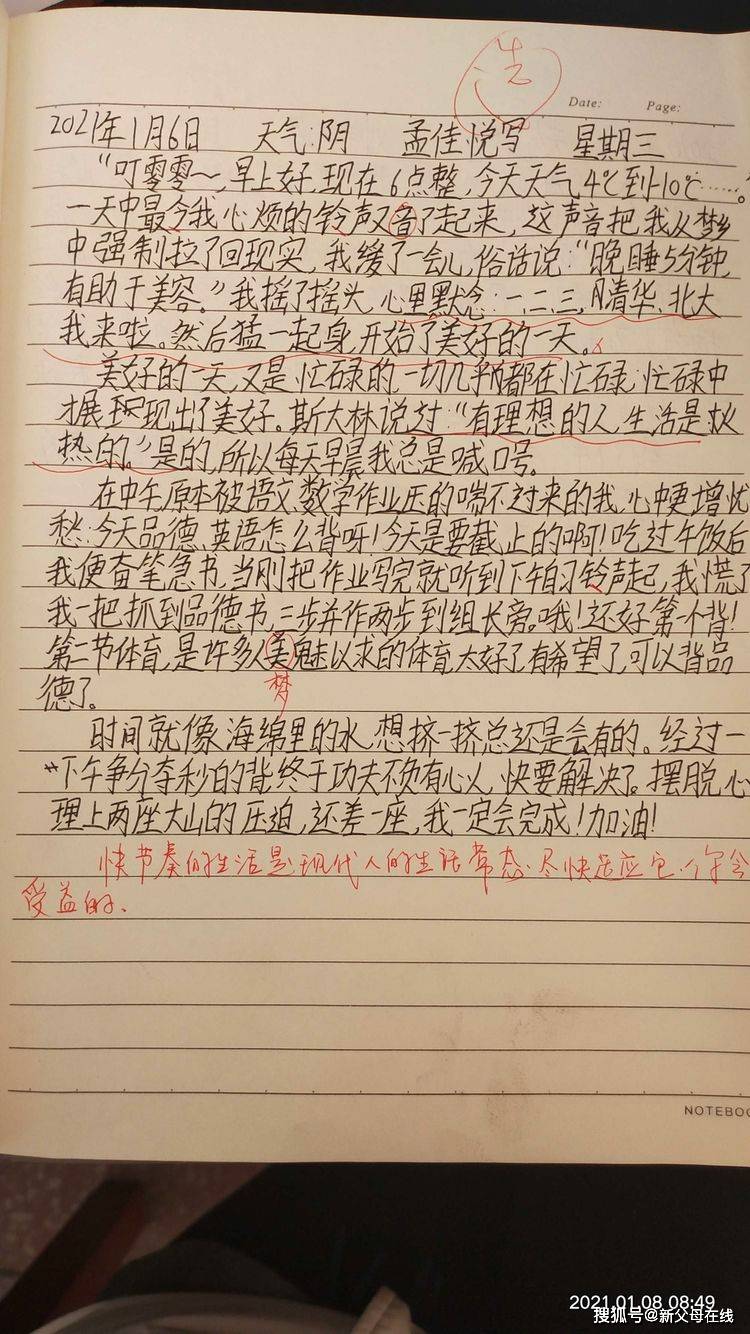 选
Date: Page:
2021年1月6日 天气:阴 孟佳悦写 星期三
“叮零零~,早上好,现在6点整,今天天气4℃到-10℃……。
一天中最令我心烦的铃声又音了起来,这声音把我从梦乡
中强制拉了回现实,我缓了一会儿,俗话说:“晚睡5分钟,
有助于美容。”我摇了摇头,心里默念:一、二、三,清华、北大
我来啦。然后猛一起身,开始了美好的一天。
美好的一天,又是忙碌的,一切几乎都在忙碌,忙碌中
才展现出了美好。斯大林说过:“有理想的人,生活是火
热的。”是的,所以每天早晨我总是喊口号。
在中午原本被语文、数学作业压的喘不过来的我,心中更增忧
愁:今天品德、英语怎么背呀!今天是要截止的啊!吃过午饭后
我便奋笔急书,当刚把作业写完就听到下午自习铃声起,我慌了
我一把抓到品德书,三步并作两步到组长旁。哦!还好第一个背!
第二节体育,是许多人美魅以求的体育,太好了,有希望了,可以背品
梦
德了。
时间就像海绵里的水,想挤一挤总还是会有的。经过一
下午争分夺秒的背,终于功夫不负有心人,快要解决了。摆脱心
理上两座大山的压迫,还差一座,我一定会完成!加油!
快节奏的生活是现代人的生活常态,尽快适应它,你会
受益的.
NOTEBOO
2021.01.08 08:49
搜狐号@新父母在线